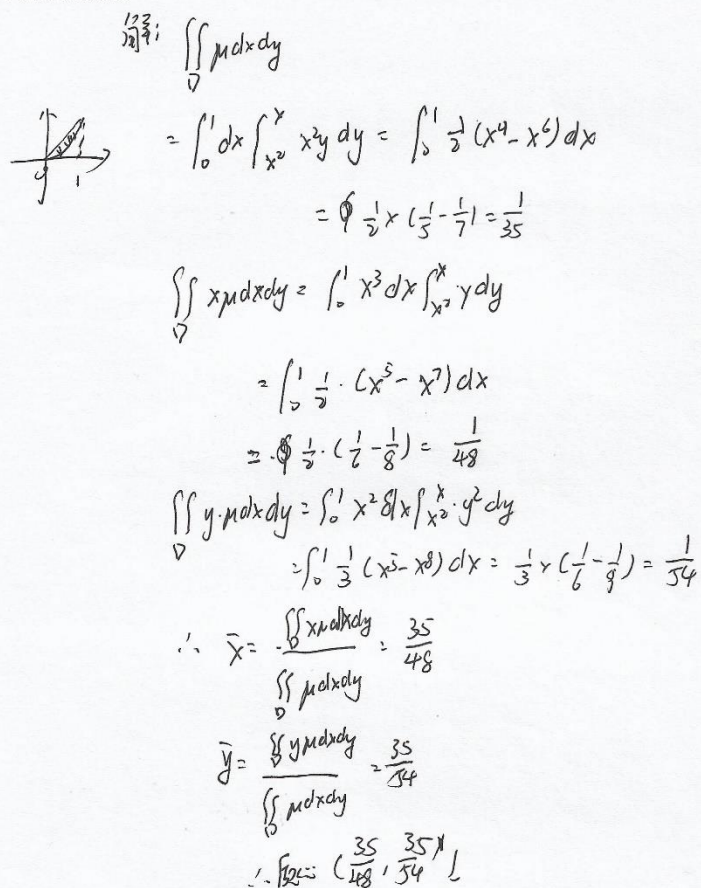 解: ∬_D μdxdy
= ∫_0^1 dx ∫_{x²}^x x²y dy = ∫_0^1 1/2 (x⁴ - x⁶) dx
= 1/2 × (1/5 - 1/7) = 1/35
1
∬_D xμdxdy = ∫_0^1 x³ dx ∫_{x²}^x y dy
= ∫_0^1 1/2 · (x⁵ - x⁷) dx
= 1/2 · (1/6 - 1/8) = 1/48
∬_D y·μdxdy = ∫_0^1 x² dx ∫_{x²}^x · y² dy
= ∫_0^1 1/3 (x⁵ - x⁸) dx = 1/3 × (1/6 - 1/9) = 1/54
∴ x̄ = ∬_D xμdxdy / ∬_D μdxdy = 35/48
ȳ = ∬_D yμdxdy / ∬_D μdxdy = 35/54
∴ (35/48, 35/54)